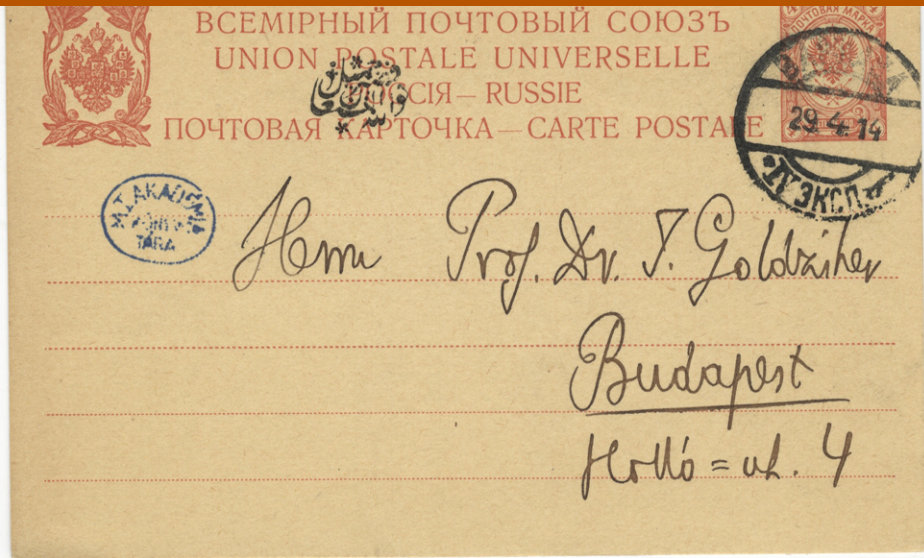 ВСЕМІРНЫЙ ПОЧТОВЫЙ СОЮЗЪ
UNION POSTALE UNIVERSELLE
РОССІЯ — RUSSIE
ПОЧТОВАЯ КАРТОЧКА — CARTE POSTALE
ПОЧТОВАЯ МАРКА
29 4 14
IV ЭКСП.
M.T. AKADÉMIA
KÖNYV
TÁRA
Herrn Prof. Dr. I. Goldziher
Budapest
Holló=ut. 4